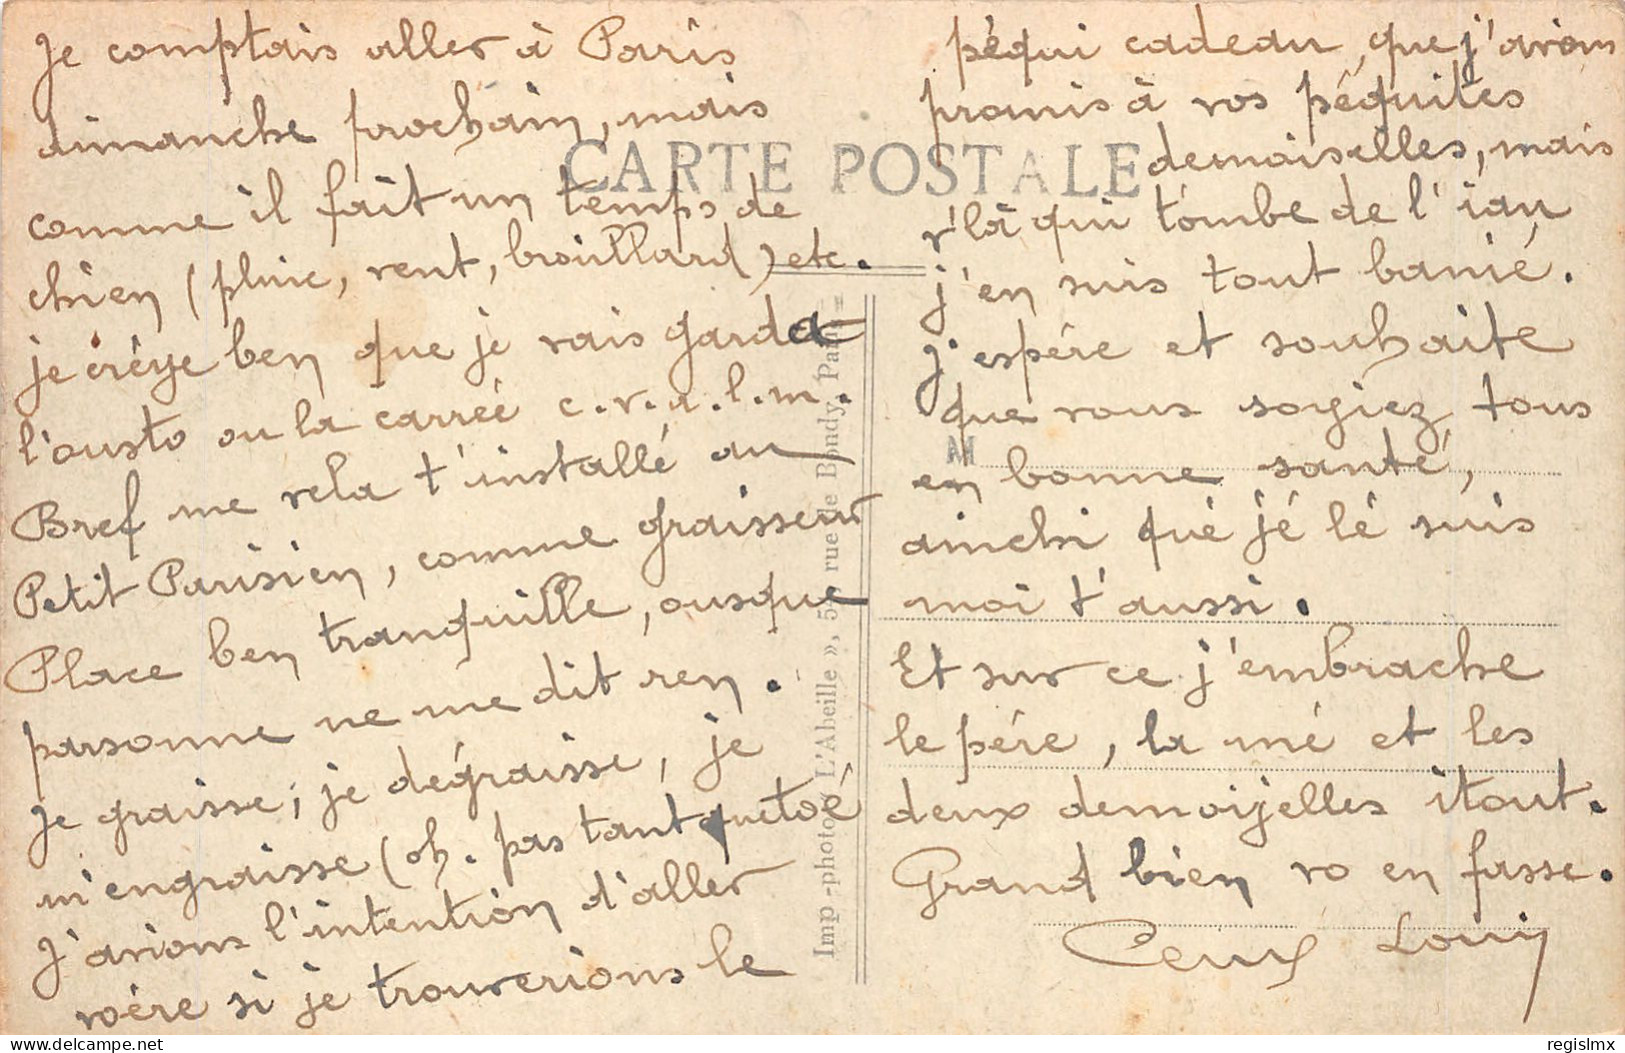 Je comptais aller à Paris
dimanche prochain, mais
comme il fait un temps de
chien (pluie, vent, brouillard) etc.
je crèye ben que je vais garda
l'ousto ou la carrée c.v.a.l.m.
Bref me vela t'installé au
Petit Parisien, comme graisseur
Place ben tranquille, ousque
parsonne ne me dit ren.
Je graisse; je dégraisse, je
m'engraisse (oh. pas tant que toé
J'avions l'intention d'aller
voère si je trouverions le
péqui cadeau, que j'avions
promis à vos péquites
demoiselles, mais
v'là qui tombe de l'iau
j'en suis tout banié.
J'espère et souhaite
que vous soyiez tous
en bonne santé,
ainchi què jé lé suis
moi t'aussi.
Et sur ce j'embrache
le père, la mé et les
deux demoijelles itout.
Grand bien vo en fasse.
Louis
CARTE POSTALE
Imp-photo « L'Abeille », rue de Bondy, Paris
regislmx